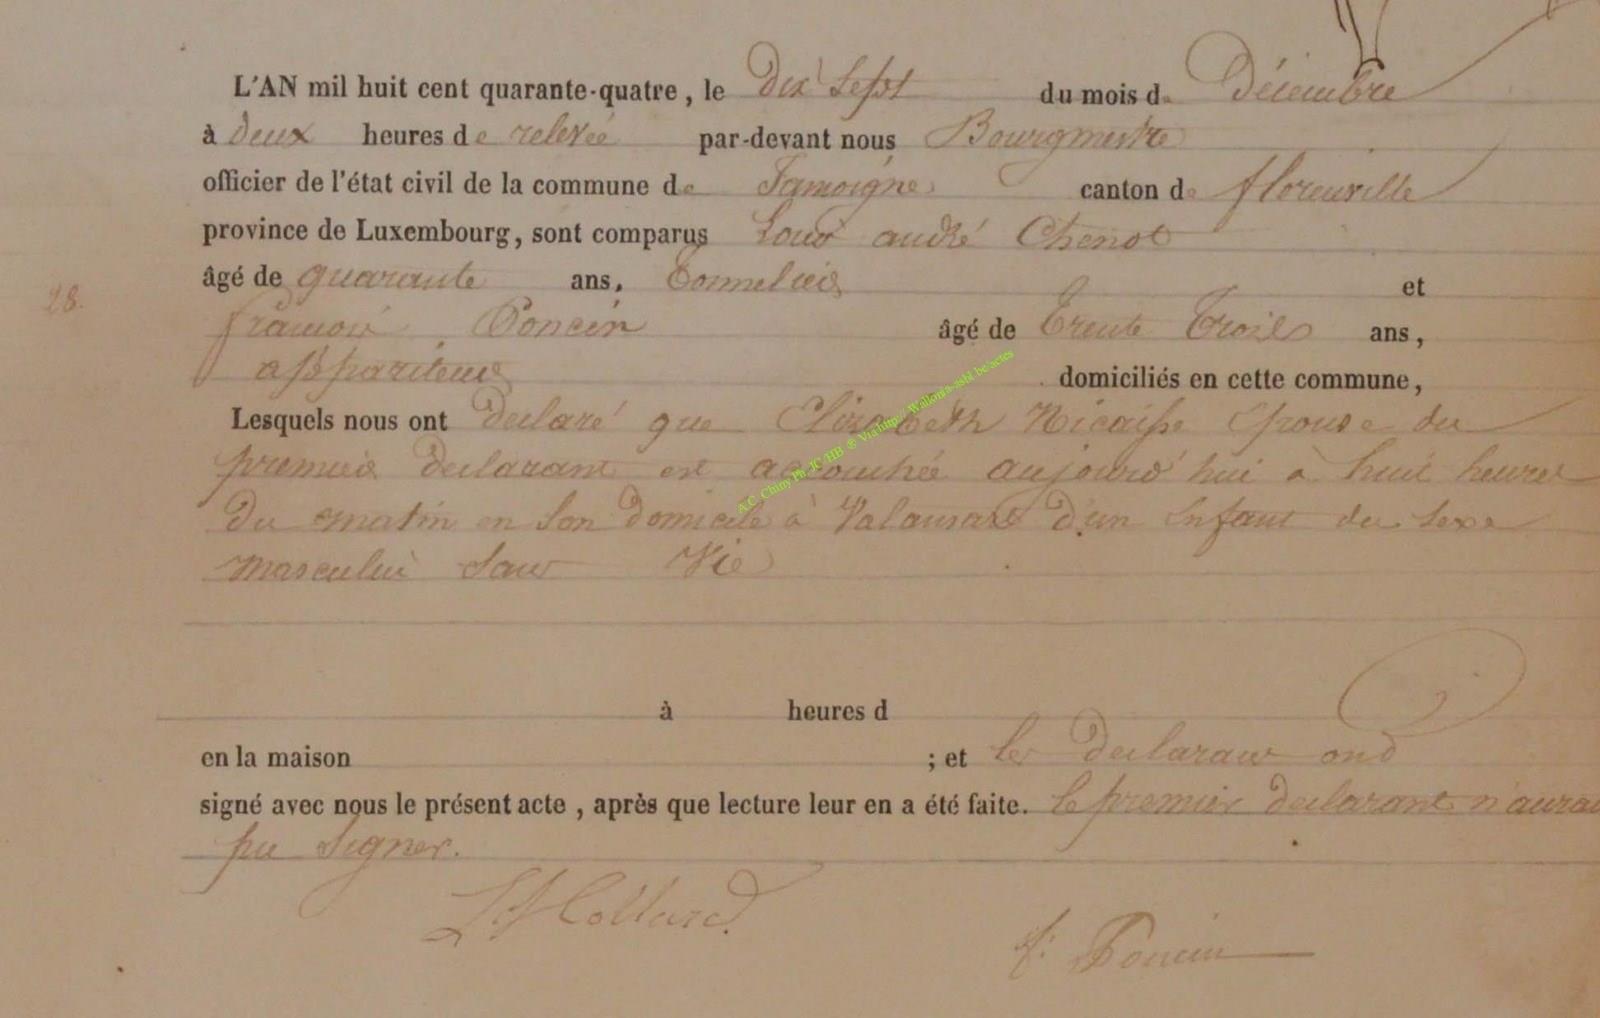 L'AN mil huit cent quarante-quatre, le Dix Sept du mois de Décembre
à deux heures de relevée par-devant nous Bourgmestre
officier de l'état civil de la commune de Jamoigne canton de florenville
province de Luxembourg, sont comparus Louis andré Chenot
âgé de quarante ans, Tonnelier et
28.
françois Poncin âgé de Trente Trois ans,
appariteur domiciliés en cette commune,
Lesquels nous ont declaré que Elizabeth Nicaisse Epouse du
premier declarant est accouchée aujourd'hui à huit heures
du matin en son domicile à Valansart d'un Enfant du Sexe
masculin Sans Vie
à heures d
en la maison ; et les declarans ont
signé avec nous le présent acte, après que lecture leur en a été faite. le premier declarant n'aurai
pu Signer.
Collard
f. Poncin
A.C. Chiny Ph JC/HB ® Via http://Wallonia-asbl.be/actes